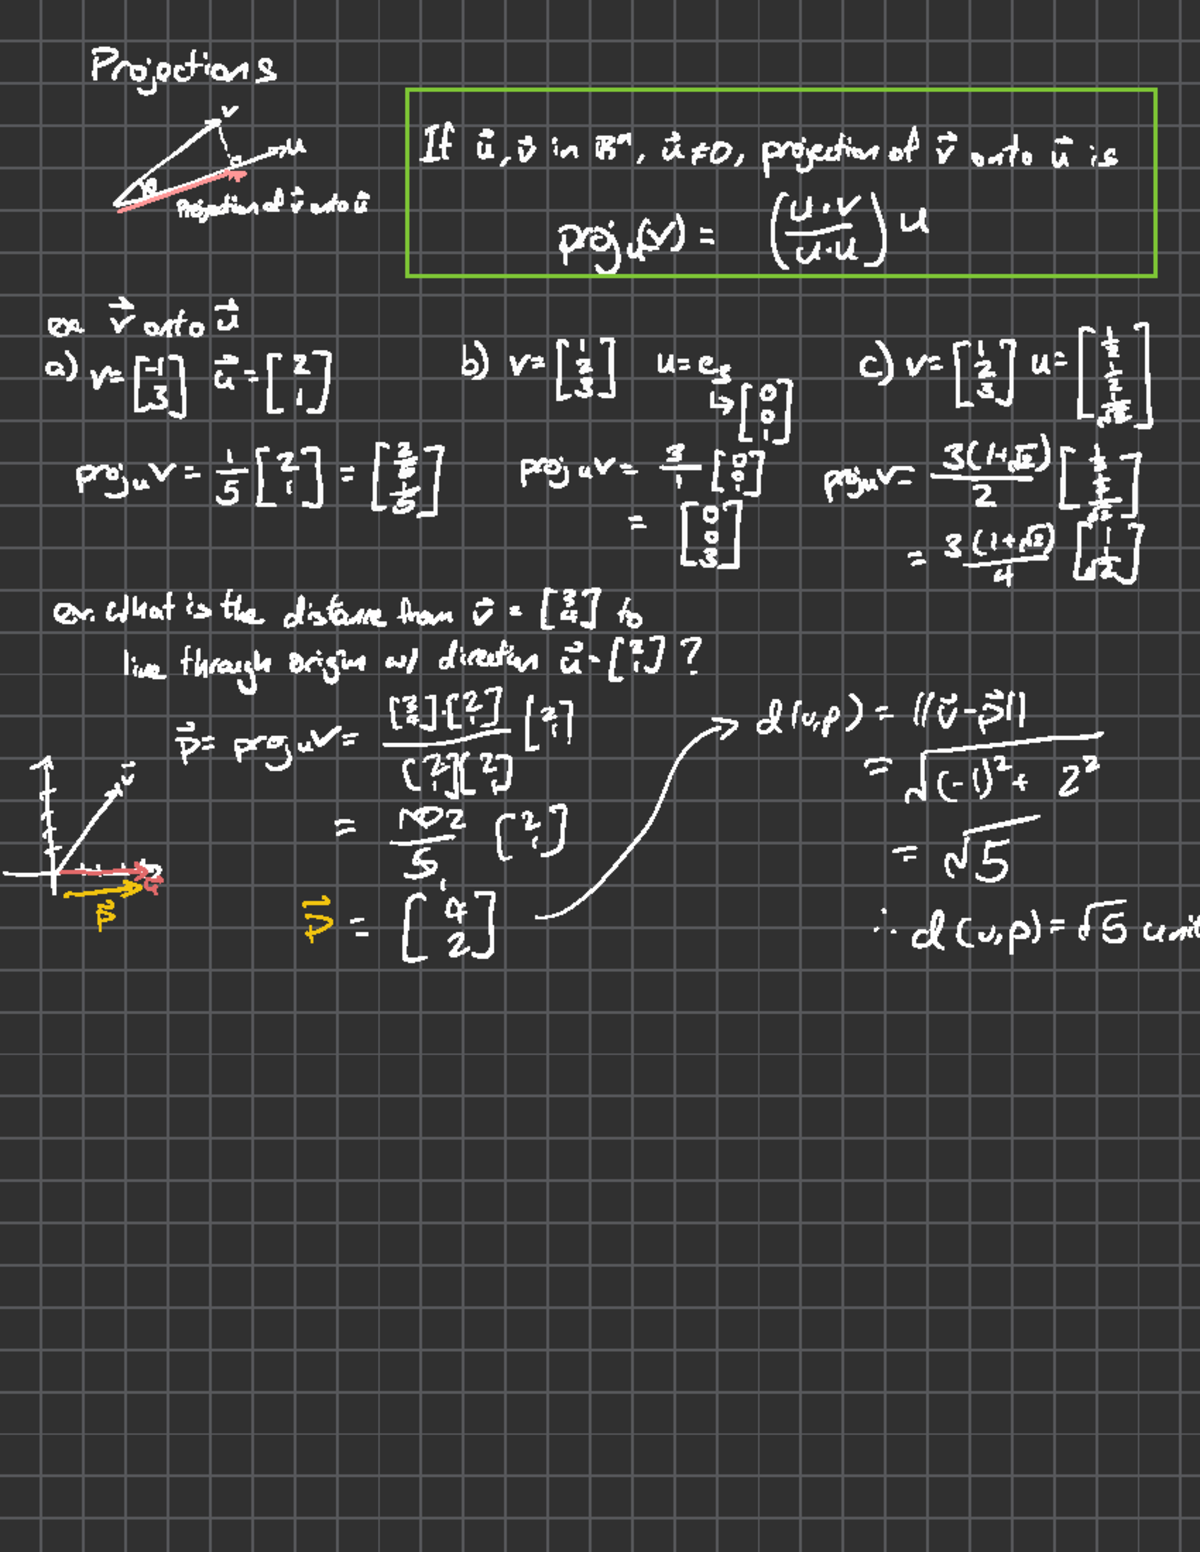 Projections
v
u
θ
Projection of v⃗ onto u⃗
If u⃗, v⃗ in ℝⁿ, u⃗ ≠ 0, projection of v⃗ onto u⃗ is
proj_u(v) = (u·v / u·u) u
ex. v⃗ onto u⃗
a) v = [-1 3] u⃗ = [2 1]
proj_u v = 1/5 [2 1] = [2/5 1/5]
b) v = [1 2 3] u = e₃
↳ [0 0 1]
proj_u v = 3/1 [0 0 1]
= [0 0 3]
c) v = [1 2 3] u = [1/2 1/2 1/√2]
proj_u v = 3(1+√2)/2 [1/2 1/2 1/√2]
= 3(1+√2)/4 [1 1 √2]
ex. What is the distance from v⃗ = [3 4] to
line through origin w/ direction u⃗ = [2 1] ?
p⃗ = proj_u v = [3 4]·[2 1] / [2 1][2 1] [2 1]
= 10 2 / 5 1 [2 1]
p⃗ = [4 2]
v⃗
u⃗
p⃗
→ d(v,p) = ||v⃗ - p⃗||
= √(-1)² + 2²
= √5
∴ d(v,p) = √5 unit